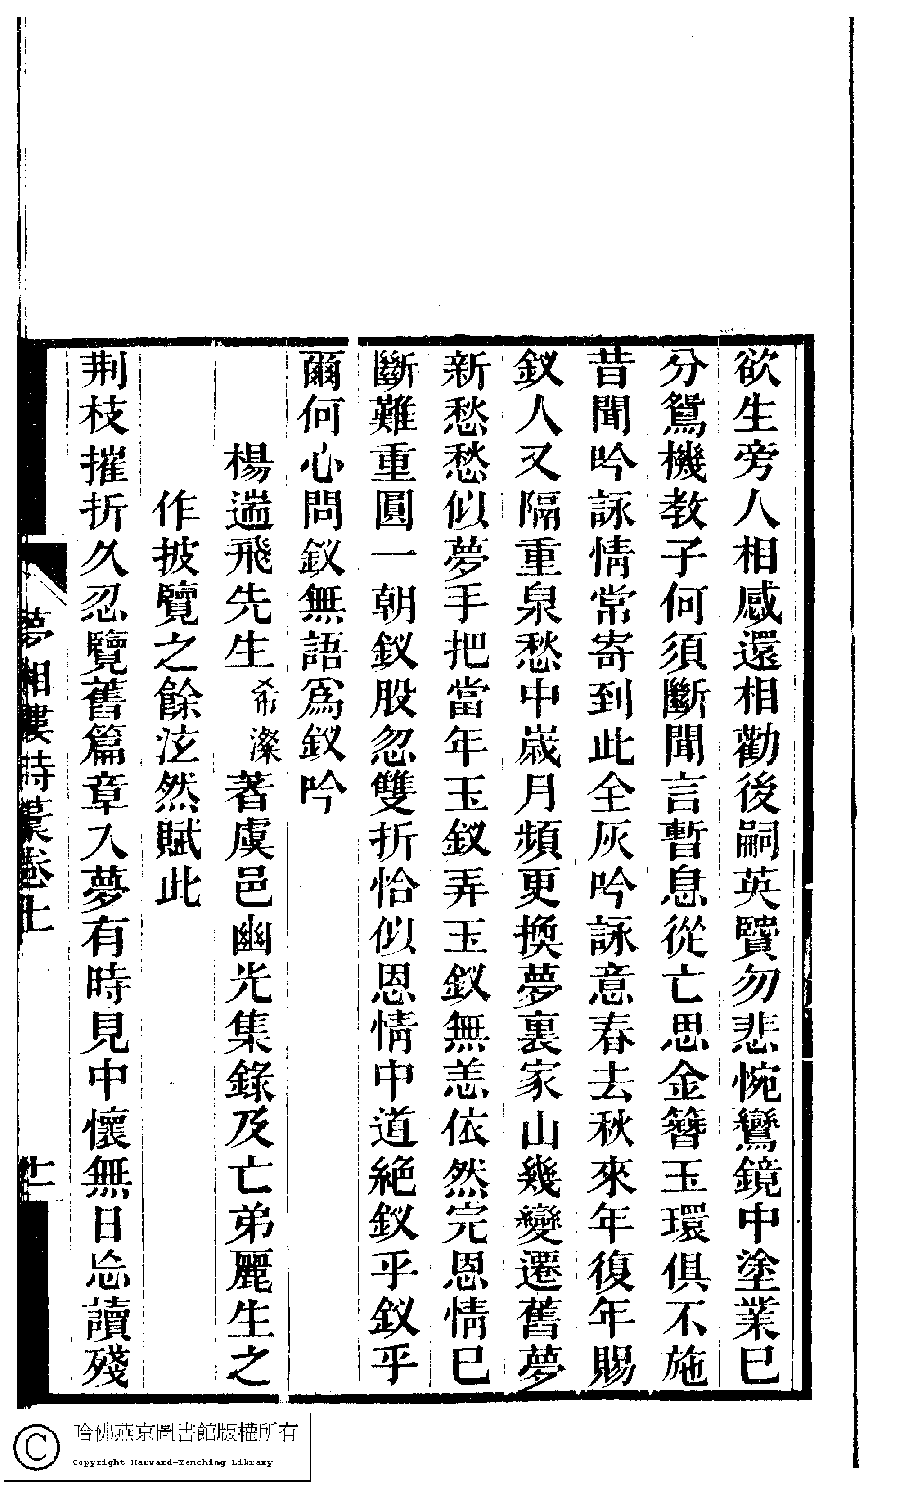 欲生旁人相感還相勸後嗣英賢勿悲惋鸞鏡中塗業已
分鴛機教子何須斷聞言暫息從亡思金簪玉環俱不施
昔聞吟詠情常寄到此全灰吟詠意春去秋來年復年賜
釵人又隔重泉愁中歲月頻更換夢裏家山幾變遷舊夢
新愁愁似夢手把當年玉釵弄玉釵無恙依然完恩情已
斷難重圓一朝釵股忽雙折恰似恩情中道絕釵乎釵乎
爾何心問釵無語爲釵吟
楊遄飛先生希濚著虞邑幽光集錄及亡弟麗生之
作披覽之餘泫然賦此
荆枝摧折久忍覽舊篇章入夢有時見中懷無日忘讀殘
夢湘樓詩藁卷上
十一
哈佛燕京圖書館版權所有
Copyright Harvard-Yenching Library